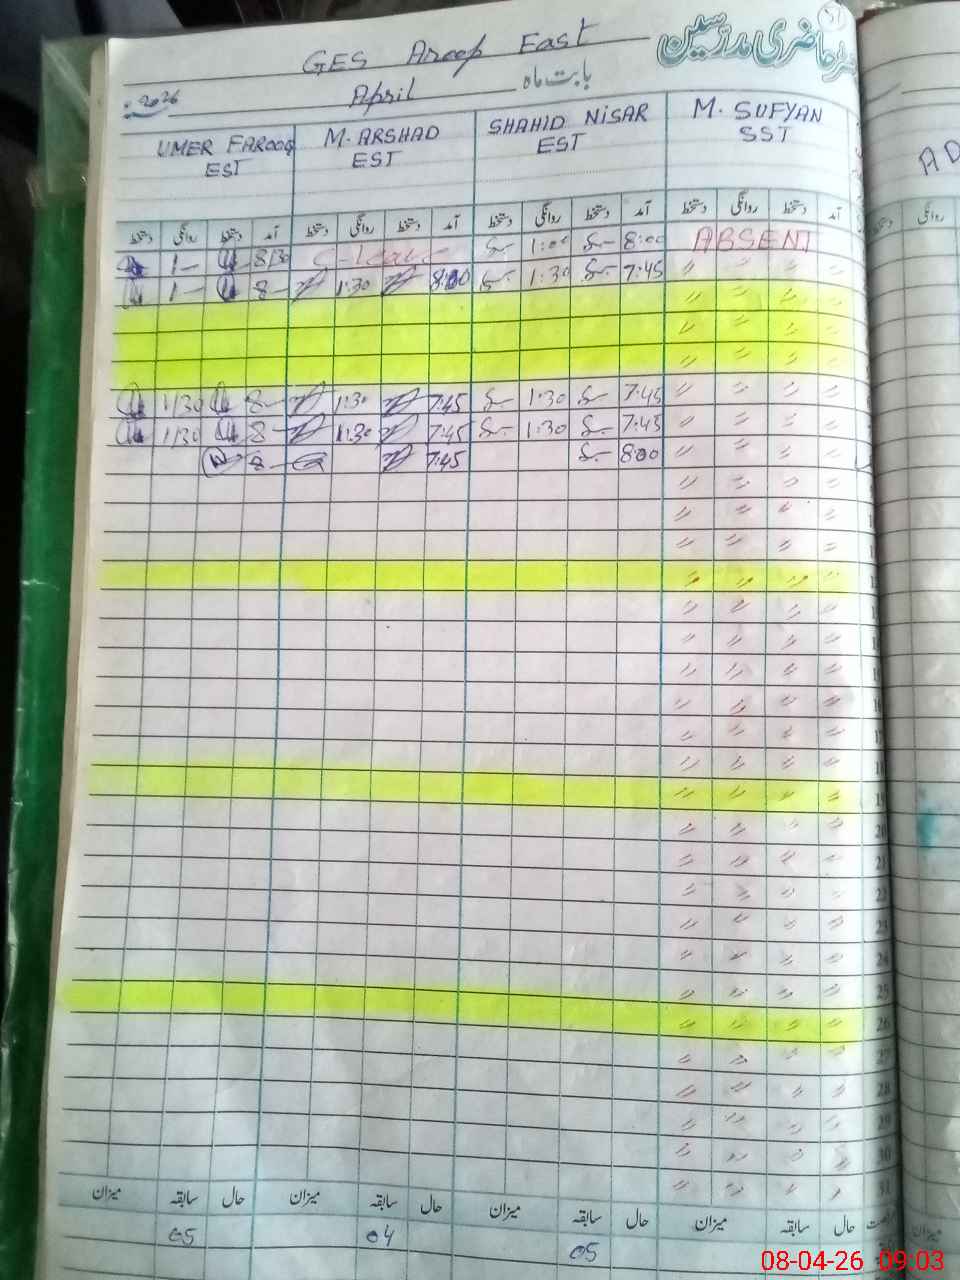 حاضری مدرسین
GES Aroop East
بابت ماہ April 2026
UMER FAROOQ EST M. ARSHAD EST SHAHID NISAR EST M. SUFYAN SST
دستخط روانگی دستخط آمد دستخط روانگی دستخط آمد دستخط روانگی دستخط آمد دستخط روانگی دستخط آمد
1 — 8/30 C-Leave 1:00 8:00 ABSENT
1 — 8 — 1:30 8:00 1:30 7:45 〃 〃 〃 〃
〃 〃 〃 〃
〃 〃 〃 〃
〃 〃 〃 〃
1/30 8 — 1:30 7:45 1:30 7:45 〃 〃 〃 〃
1/30 8 — 1:30 7:45 1:30 7:45 〃 〃 〃 〃
8 — 7:45 8:00 〃 〃 〃 〃
20
21
22
23
24
25
26
27
28
29
30
31
میزان سابقہ حال میزان سابقہ حال میزان سابقہ حال میزان سابقہ حال
05 04 05
08-04-26 09:03